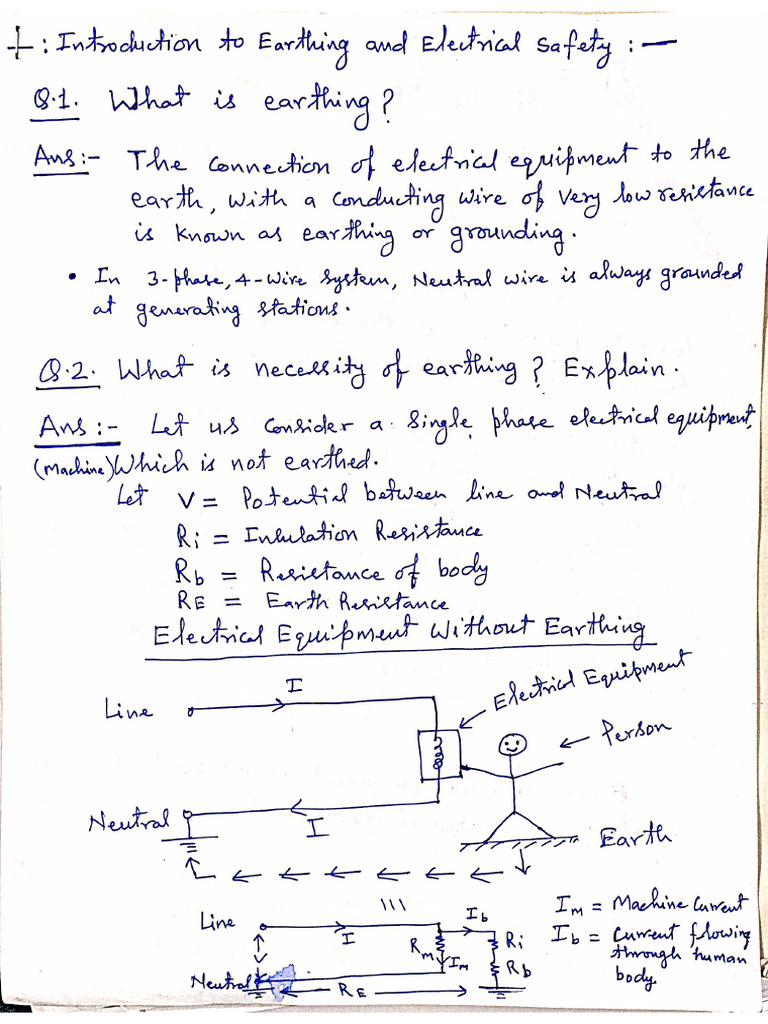 +: Introduction to Earthing and Electrical Safety :-
Q.1. What is earthing?
Ans:- The connection of electrical equipment to the
earth, with a conducting wire of very low resistance
is known as earthing or grounding.
• In 3-phase, 4-wire system, Neutral wire is always grounded
at generating stations.
Q.2. What is necessity of earthing? Explain.
Ans:- Let us consider a single phase electrical equipment,
(Machine) which is not earthed.
Let V = Potential between line and Neutral
Ri = Insulation Resistance
Rb = Resistance of body
RE = Earth Resistance
Electrical Equipment Without Earthing
I
Electrical Equipment
Line
Person
Neutral
I
Earth
Line
I
Ib
Im = Machine Current
Rm
Im
Ri
Ib = Current flowing
through human
body.
Rb
Neutral
RE